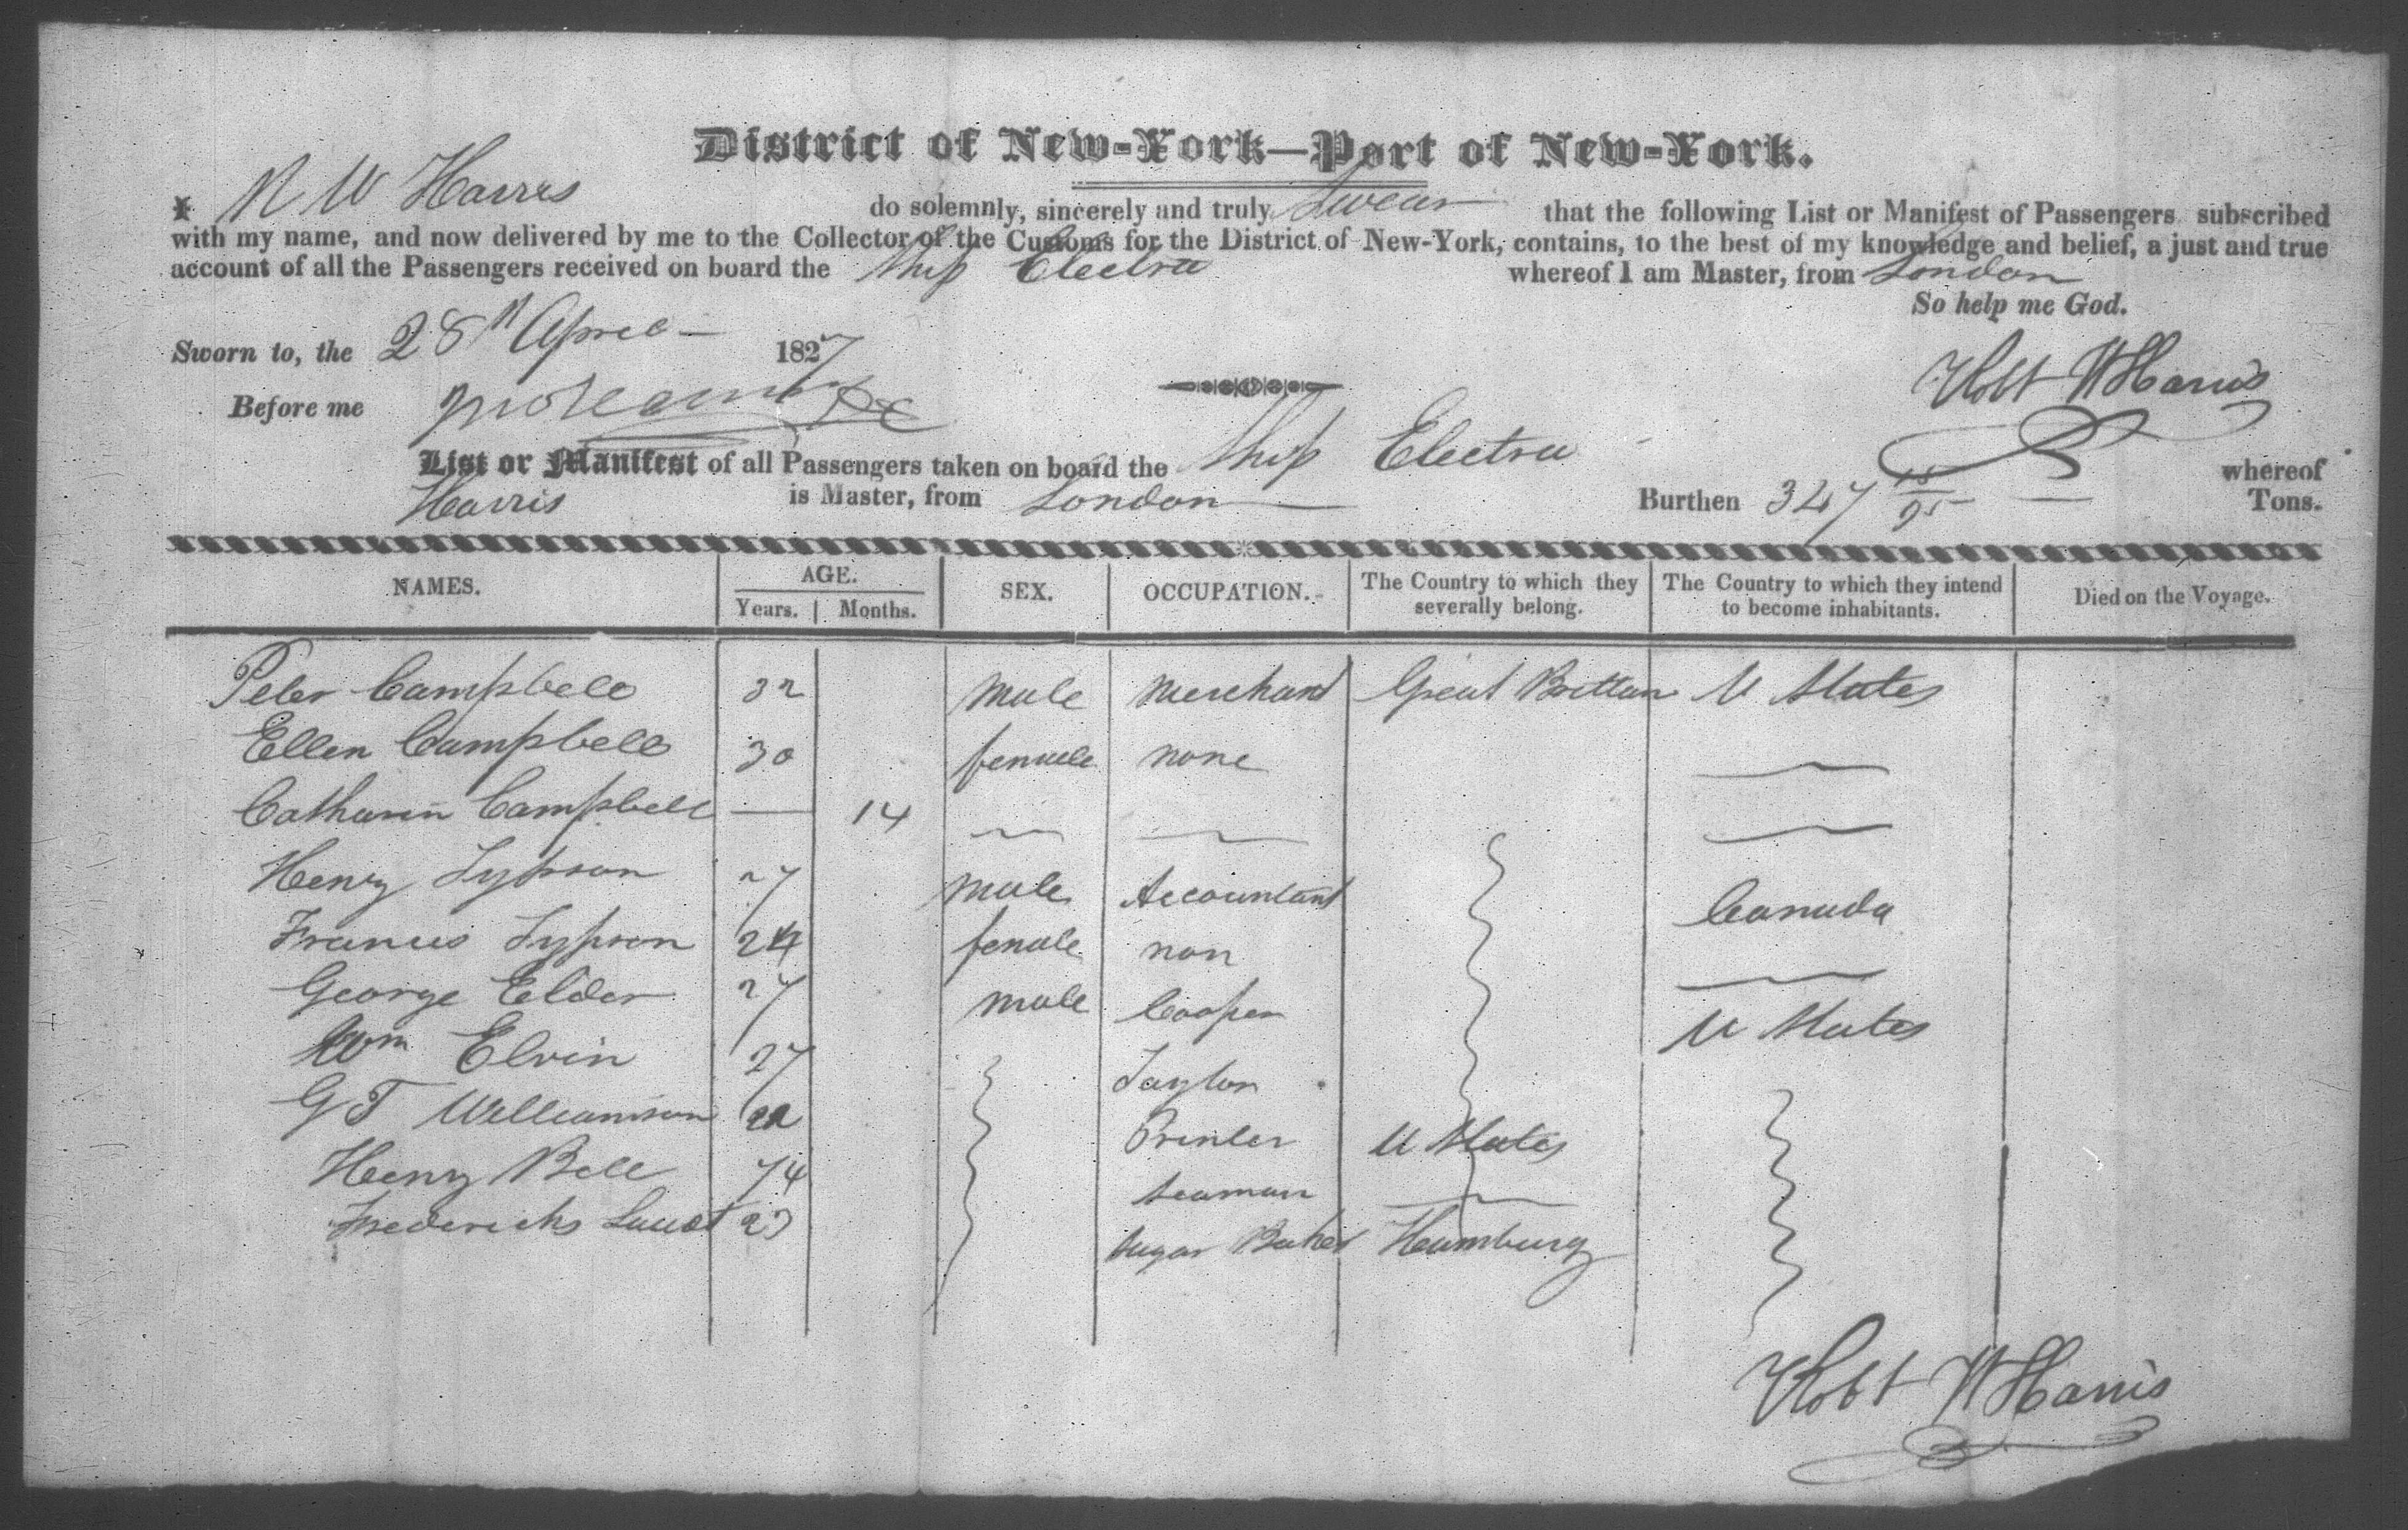 District of New-York—Port of New-York.
I R W Harris do solemnly, sincerely and truly Swear that the following List or Manifest of Passengers subscribed
with my name, and now delivered by me to the Collector of the Customs for the District of New-York, contains, to the best of my knowledge and belief, a just and true
account of all the Passengers received on board the Ship Electra whereof I am Master, from London
So help me God.
Sworn to, the 28th April 1827
Robt W Harris
Before me
List or Manifest of all Passengers taken on board the Ship Electra whereof
Harris is Master, from London Burthen 347 15/95 Tons.
NAMES. AGE. Years. Months. SEX. OCCUPATION. The Country to which they severally belong. The Country to which they intend to become inhabitants. Died on the Voyage.
Peter Campbell 32 male merchant Great Brittan U States
Ellen Campbell 30 female none
Catharin Campbell — 14
Henry 27 male Accountant Canada
Francis 24 female non
George Elder 27 male Cooper U States
Wm Elvin 27 Taylor
G T Williamson 22 Printer U States
Henry Bell 74 seaman
Fredericks 23 sugar Baker Hamburg
Robt W Harris